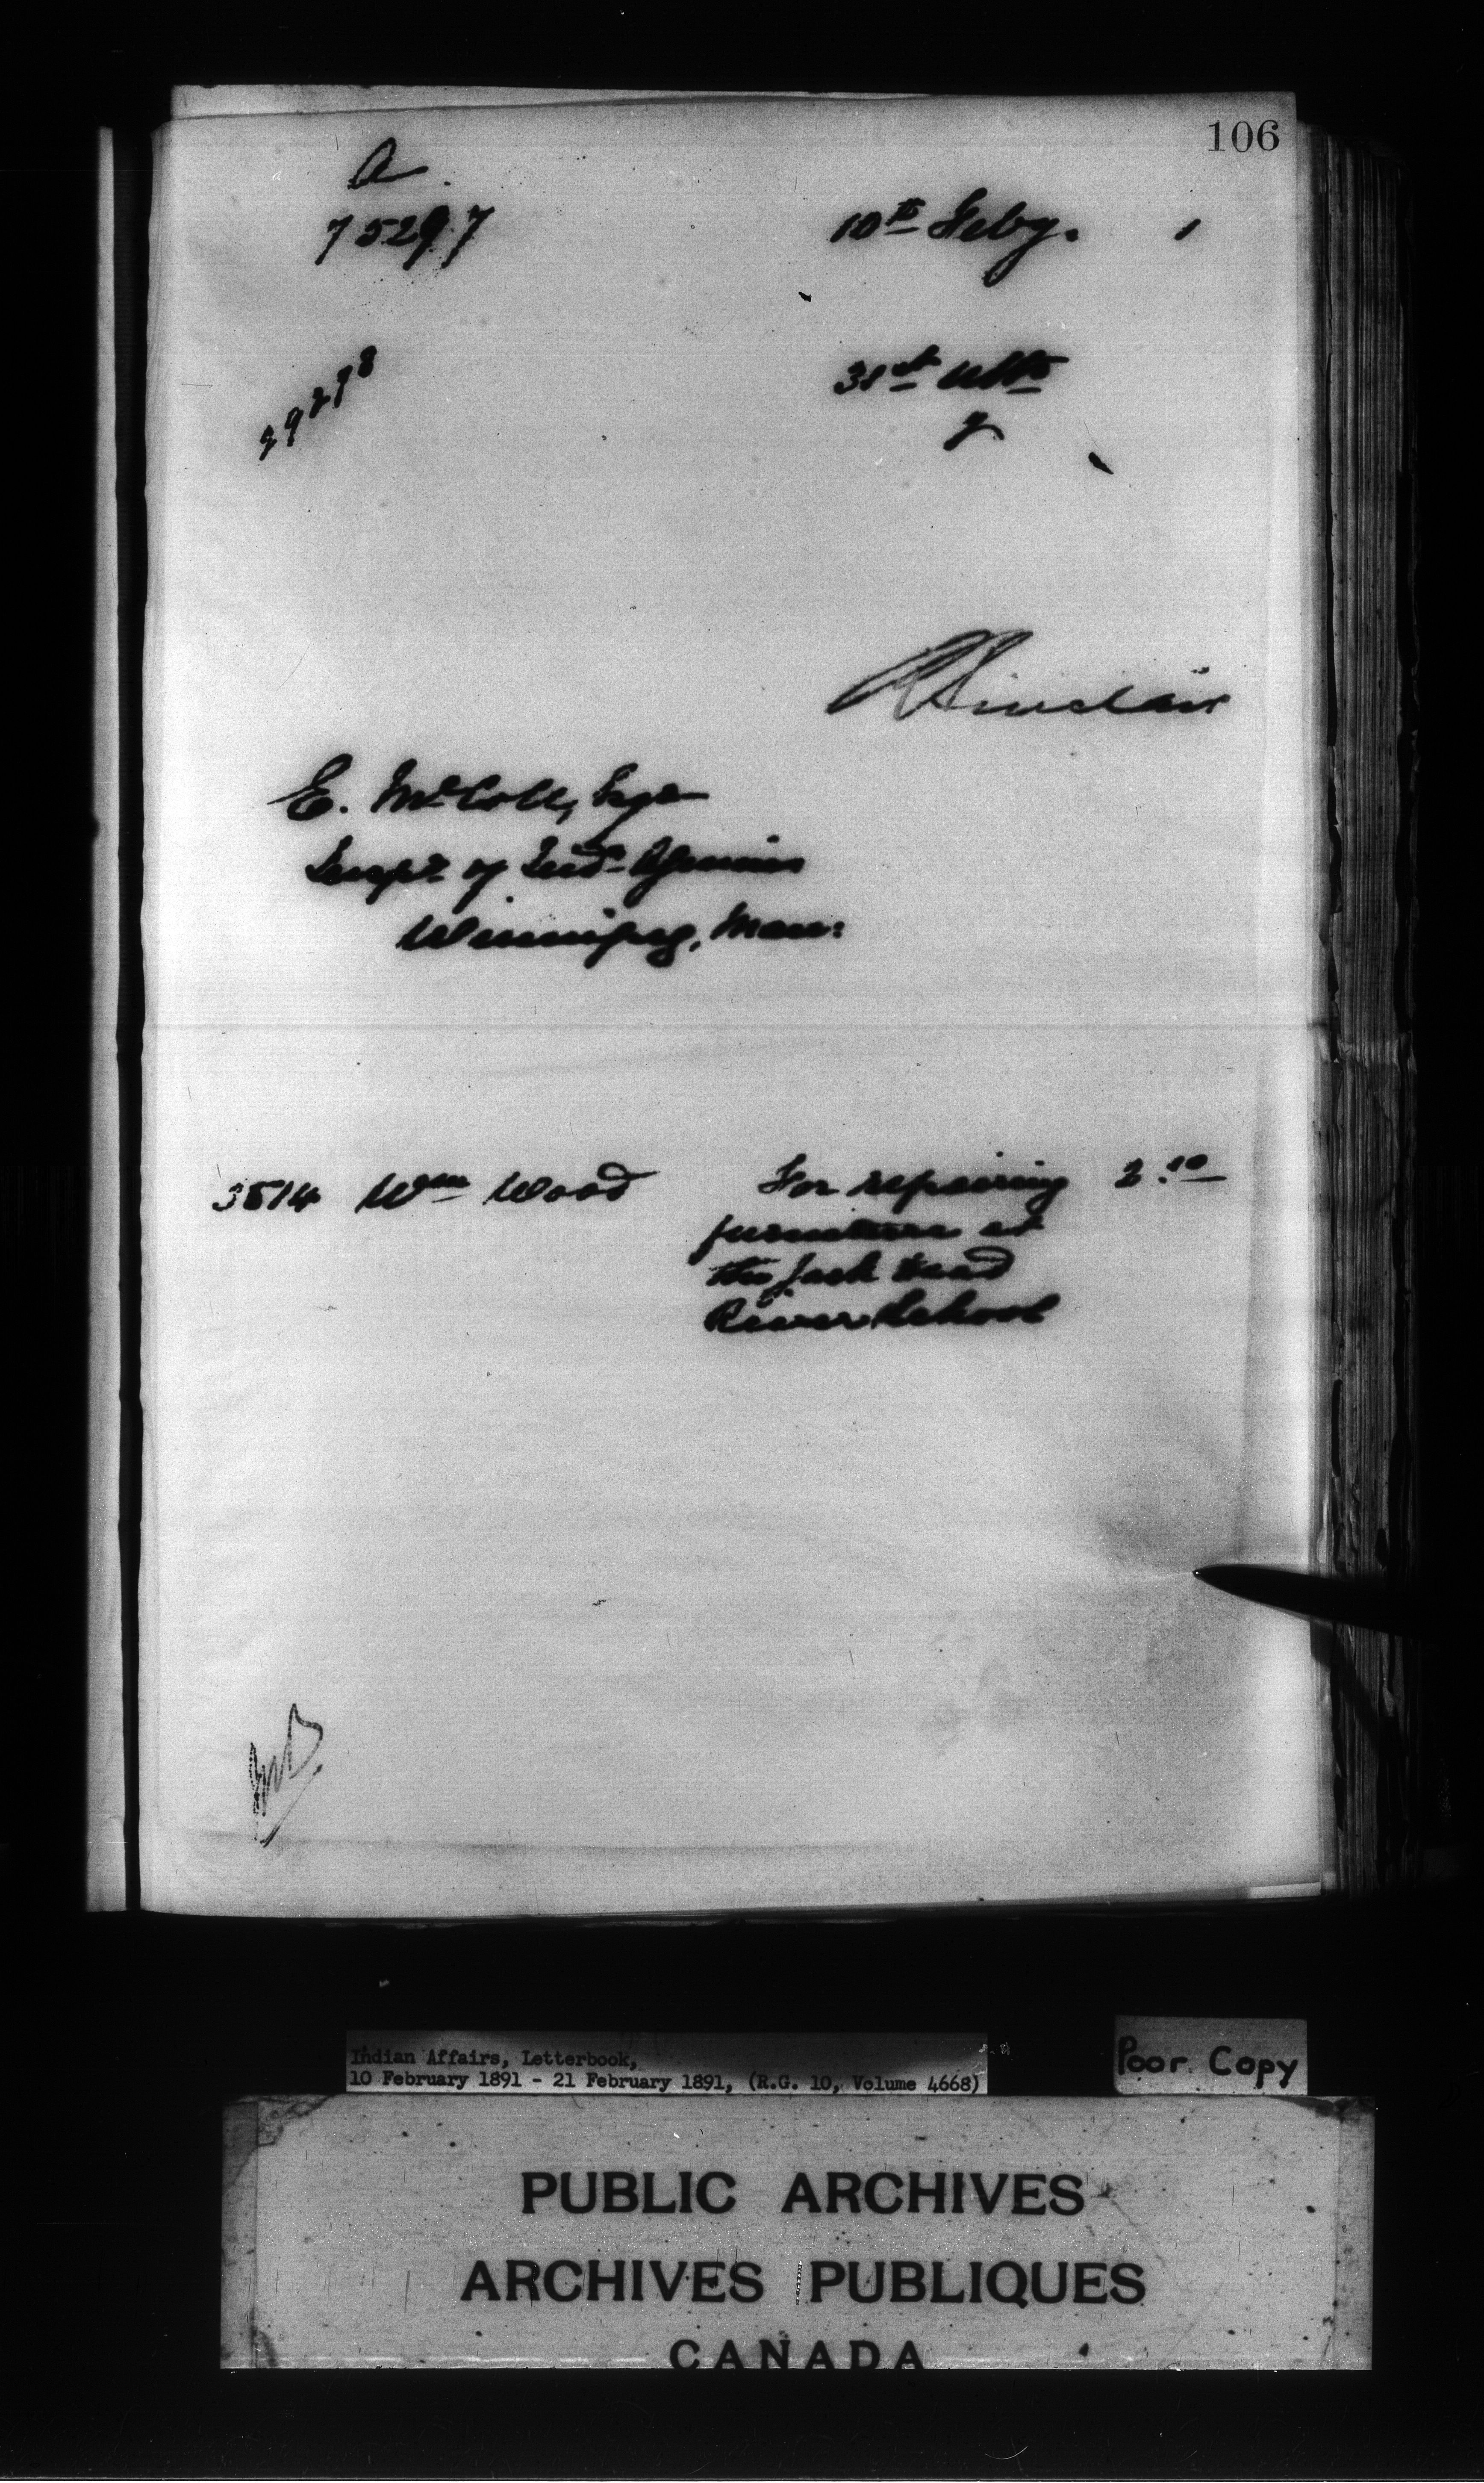 106
A
75297
10th Feby. 1
31st ulto
R Sinclair
E. McColl, Esqr
Inspr. of Ind. Agencies
Winnipeg, Man:
3514 Wm Wood For repairing 2.10
furniture at
the Jack Head
River School
Indian Affairs, Letterbook,
10 February 1891 - 21 February 1891, (R.G. 10, Volume 4668)
Poor Copy
PUBLIC ARCHIVES
ARCHIVES PUBLIQUES
CANADA